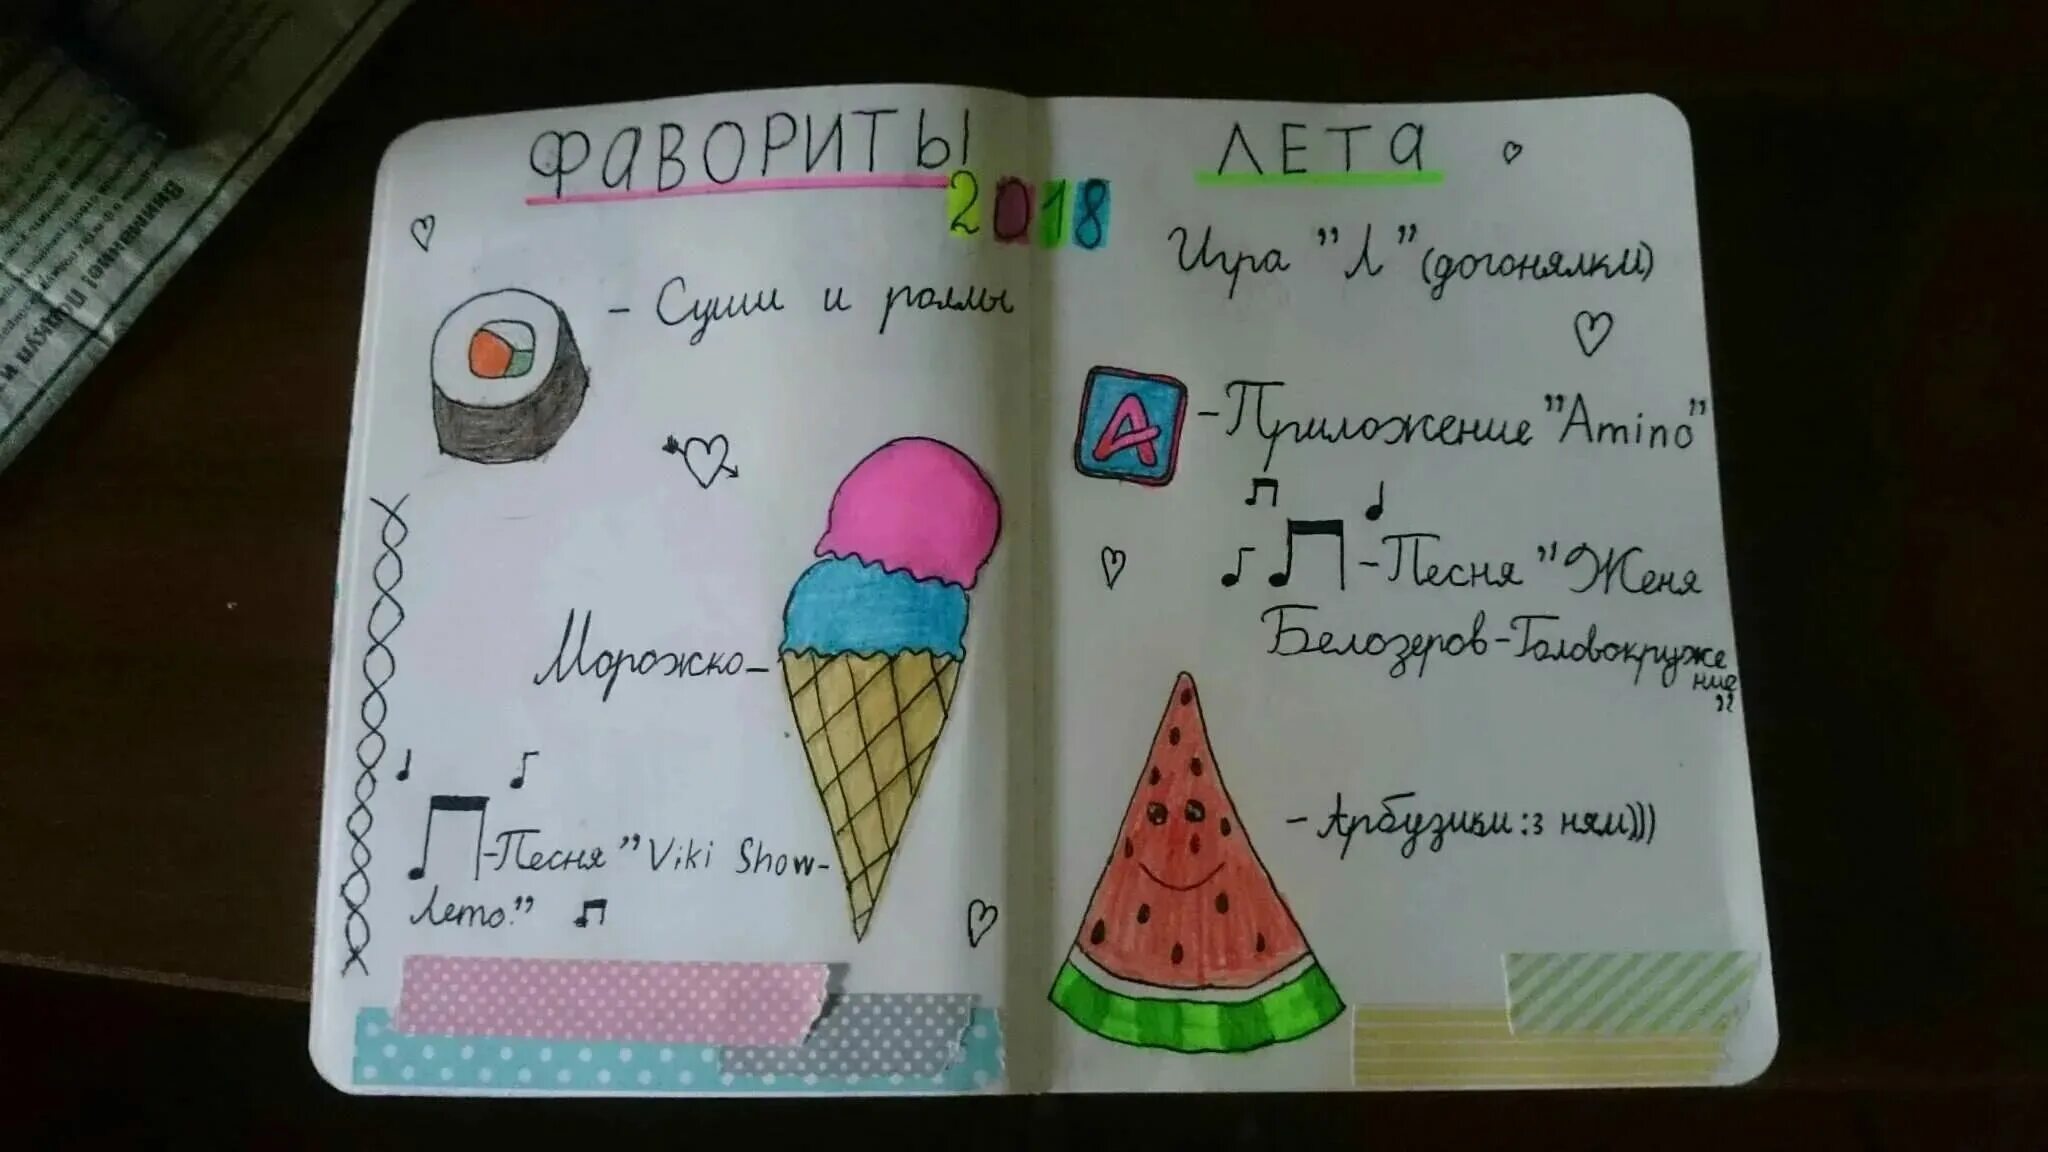 ФАВОРИТЫ ЛЕТА
2018
- Суши и роллы
Морожско-
-Песня "Viki Show-
Лето."
Игра "Л" (догонялки)
A
-Приложение "Amino"
-Песня "Женя
Белозеров-Головокруже
ние"
-Арбузики :з ням)))
Внимание!